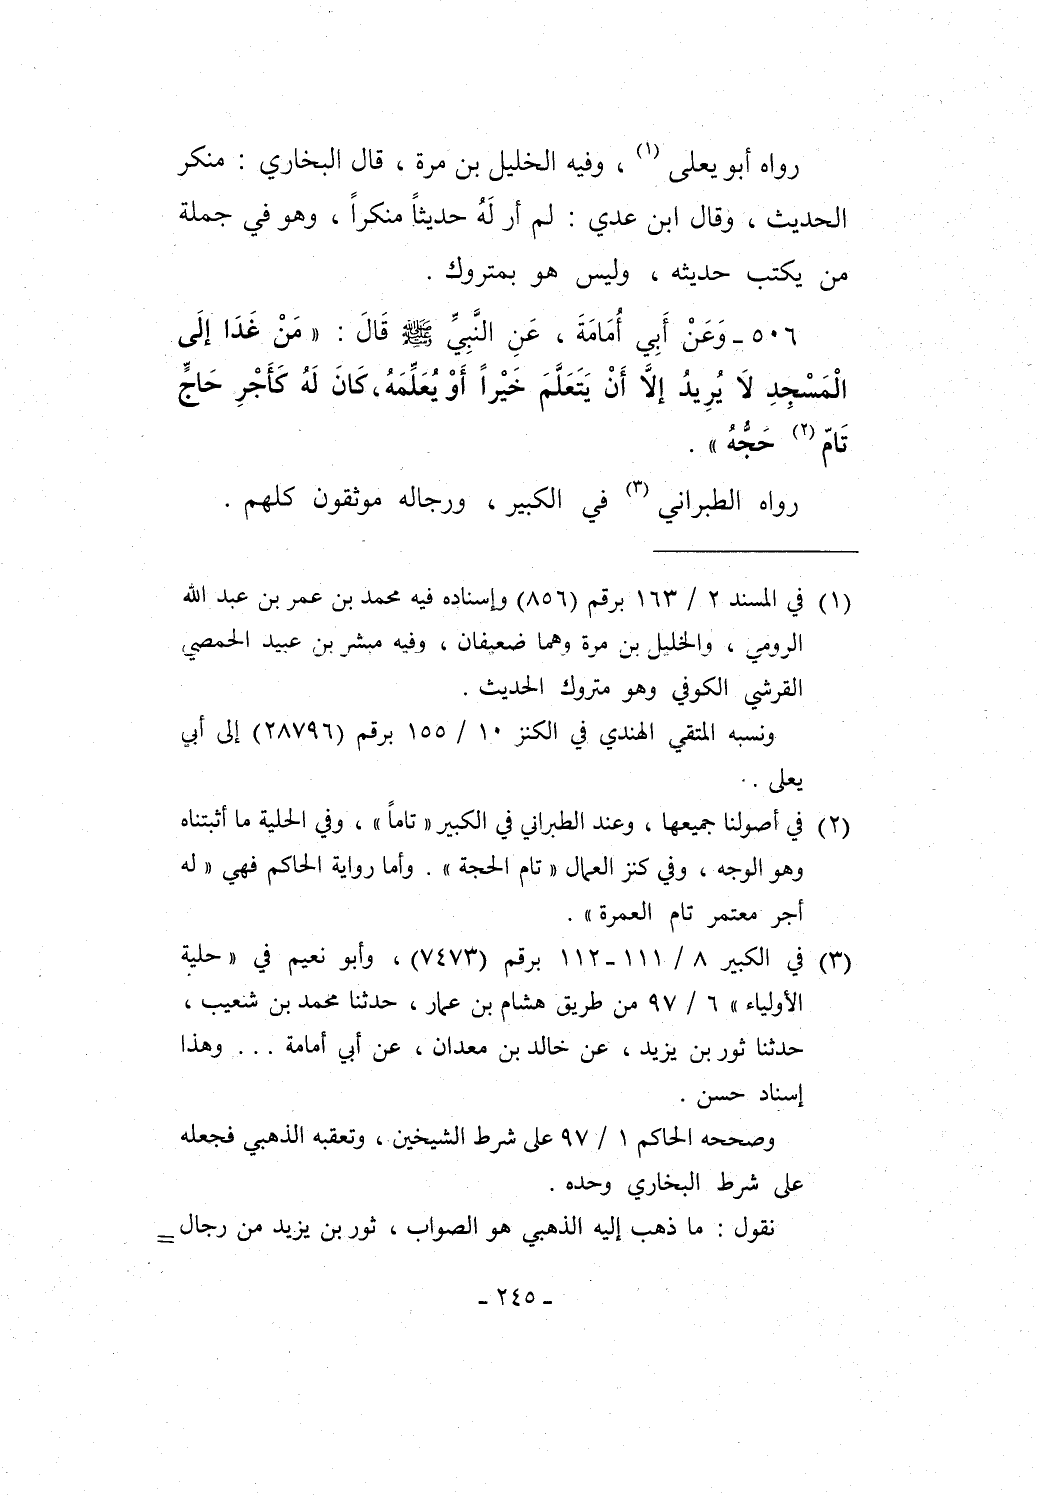 رواه أبو يعلى (١) ، وفيه الخليل بن مرة ، قال البخاري : منكر
الحديث ، وقال ابن عدي : لم أر لَهُ حديثاً منكراً ، وهو في جملة
من يكتب حديثه ، وليس هو بمتروك .
٥٠٦ ـ وَعَنْ أَبِي أُمَامَةَ ، عَنِ النَّبِيِّ ﷺ قَالَ : « مَنْ غَدَا إلَى
الْمَسْجِدِ لَا يُرِيدُ إلَّا أَنْ يَتَعَلَّمَ خَيْراً أَوْ يُعَلِّمَهُ، كَانَ لَهُ كَأَجْرِ حَاجٍّ
تَامّ (٢) حَجُّهُ » .
رواه الطبراني (٣) في الكبير ، ورجاله موثقون كلهم .
(١) في المسند ٢ / ١٦٣ برقم (٨٥٦) وإسناده فيه محمد بن عمر بن عبد الله
الرومي ، والخليل بن مرة وهما ضعيفان ، وفيه مبشر بن عبيد الحمصي
القرشي الكوفي وهو متروك الحديث .
ونسبه المتقي الهندي في الكنز ١٠ / ١٥٥ برقم (٢٨٧٩٦) إلى أبي
يعلى .
(٢) في أصولنا جميعها ، وعند الطبراني في الكبير « تاماً » ، وفي الحلية ما أثبتناه
وهو الوجه ، وفي كنز العمال « تام الحجة » . وأما رواية الحاكم فهي « له
أجر معتمر تام العمرة » .
(٣) في الكبير ٨ / ١١١ ـ ١١٢ برقم (٧٤٧٣) ، وأبو نعيم في « حلية
الأولياء » ٦ / ٩٧ من طريق هشام بن عمار ، حدثنا محمد بن شعيب ،
حدثنا ثور بن يزيد ، عن خالد بن معدان ، عن أبي أمامة ... وهذا
إسناد حسن .
وصححه الحاكم ١ / ٩٧ على شرط الشيخين ، وتعقبه الذهبي فجعله
على شرط البخاري وحده .
نقول : ما ذهب إليه الذهبي هو الصواب ، ثور بن يزيد من رجال =
ـ ٢٤٥ ـ